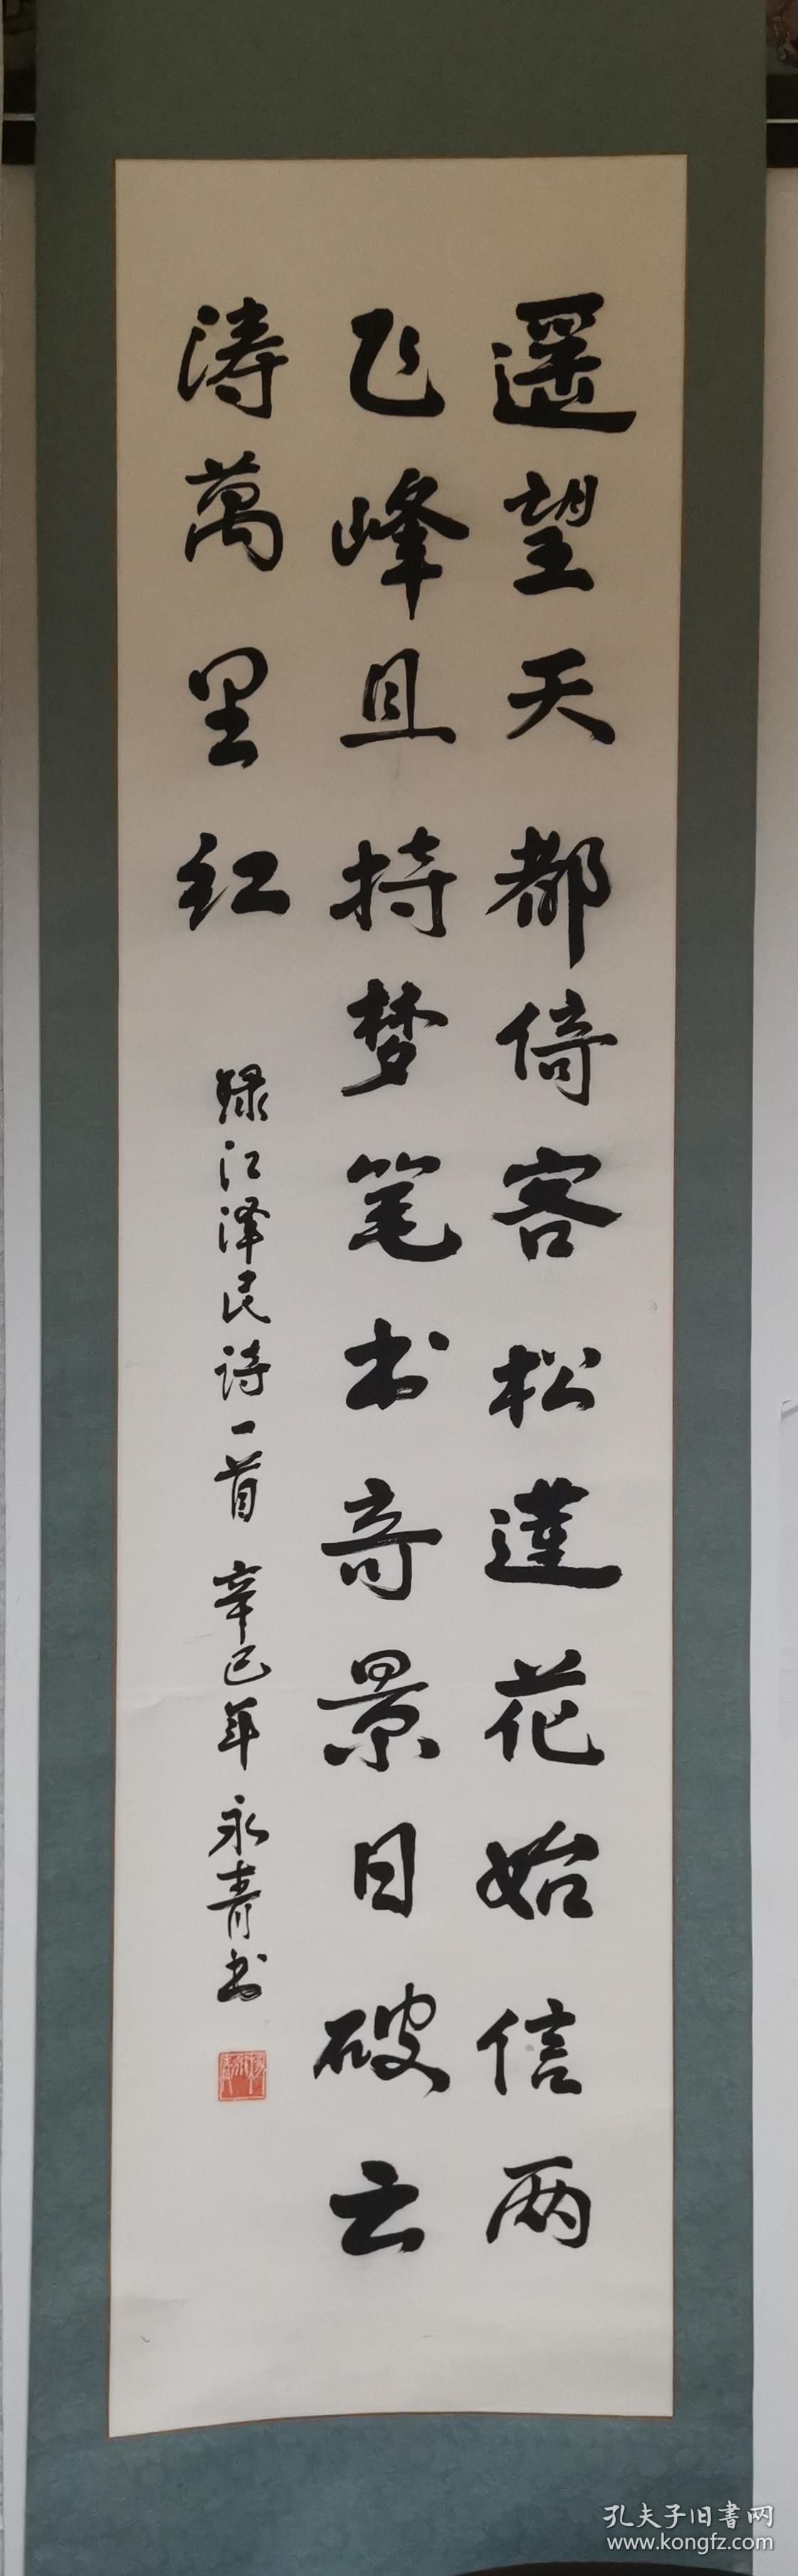 遥望天都倚客松蓮花始信两
飞峰且持梦笔书奇景日破云
涛萬里红
録江泽民诗一首 辛巳年 永青书
孔夫子旧書网
www.kongfz.com